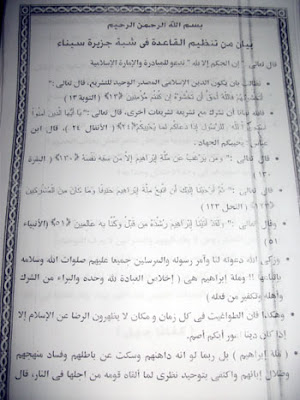 بسم الله الرحمن الرحيم
بيان من تنظيم القاعدة في شبة جزيرة سيناء
قال تعالى " إن الحكم إلا لله " ندعو للمصادرة والإمارة الإسلامية
نطالب بأن يكون الدين الإسلامى المصدر الوحيد للتشريع، قال تعالى :"
أَتَخْشَوْنَهُمْ فَاللَّهُ أَحَقُّ أَن تَخْشَوْهُ إِن كُنتُم مُّؤْمِنِينَ ﴿١٣﴾ ( التوبة ١٣ )
فلقه نهانا أن نشرك مع تشريعه تشريعات أخرى، قال تعالى :" يَا أَيُّهَا الَّذِينَ آمَنُوا
لِلَّهِ وَلِلرَّسُولِ إِذَا دَعَاكُم لِمَا يُحْيِيكُمْ ﴿٢٤﴾ ( الأنفال ٢٤ )، قال ابن
عباس: " يحييكم الجهاد .
قال تعالى :" وَمَن يَرْغَبُ عَن مِّلَّةِ إِبْرَاهِيمَ إِلاَّ مَن سَفِهَ نَفْسَهُ ﴿١٣٠﴾ ( البقرة
١٣٠ )
قال تعالى :" ثُمَّ أَوْحَيْنَا إِلَيْكَ أَنِ اتَّبِعْ مِلَّةَ إِبْرَاهِيمَ حَنِيفًا وَمَا كَانَ مِنَ الْمُشْرِكِينَ
﴿١٢٣﴾ ( النحل ١٢٣ )
وقال تعالى :" وَلَقَدْ آتَيْنَا إِبْرَاهِيمَ رُشْدَهُ مِن قَبْلُ وَكُنَّا بِه عَالِمِينَ ﴿٥١﴾ ( الأنبياء
٥١ )
وزكى الله دعوته لنا وأمر رسوله والمرسلين جميعا عليهم صلوات الله وسلامه
باتباعها !! وملة إبراهيم هى ( إخلاص العبادة لله وحده والبراء من الشرك
وأهله وتكفير من فعله )
وهكذا فإن الطواغيت فى كل زمان و مكان لا يظهرون الرضا عن الإسلام إلا
إذا كان دينا أبكم أصم.
( ملة إبراهيم ) بل ربما لو انه داهنهم وسكت عن باطلهم وفساد منهجهم
وضلال إبائهم واكتفى بتوحيد نظرى لما ألقاه قومه من اجلها في النار، قال